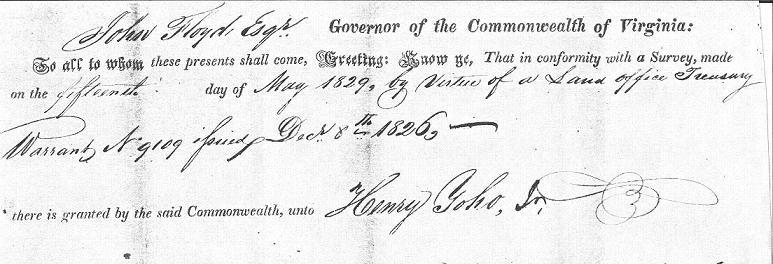 John Floyd, Esqr. Governor of the Commonwealth of Virginia:
To all to whom these presents shall come, Greeting: Know ye, That in conformity with a Survey, made
on the fifteenth day of May 1829, by Virtue of a Land office Treasury
Warrant, No 9109 issued Decr 8th 1826,
there is granted by the said Commonwealth, unto Henry Goho, Sr,